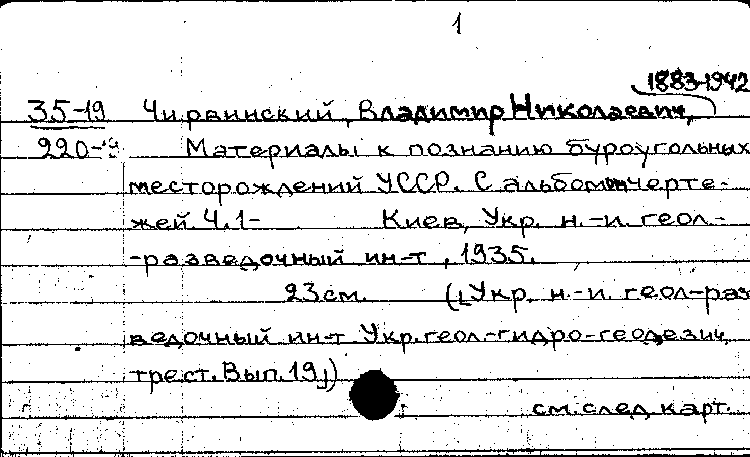 1
1883-1942
35-19 Чирвинский, Владимир Николаевич,
220-19 Материалы к познанию буроугольных
месторождений УССР. С альбомом черте-
жей Ч.1- Киев, Укр. н.-и. геол-
-разведочный ин-т, 1935.
23см. ([Укр. н.-и. геол-раз
ведочный ин-т Укр.геол-гидро-геодезич.
трест. Вып.19])
см. след. карт.